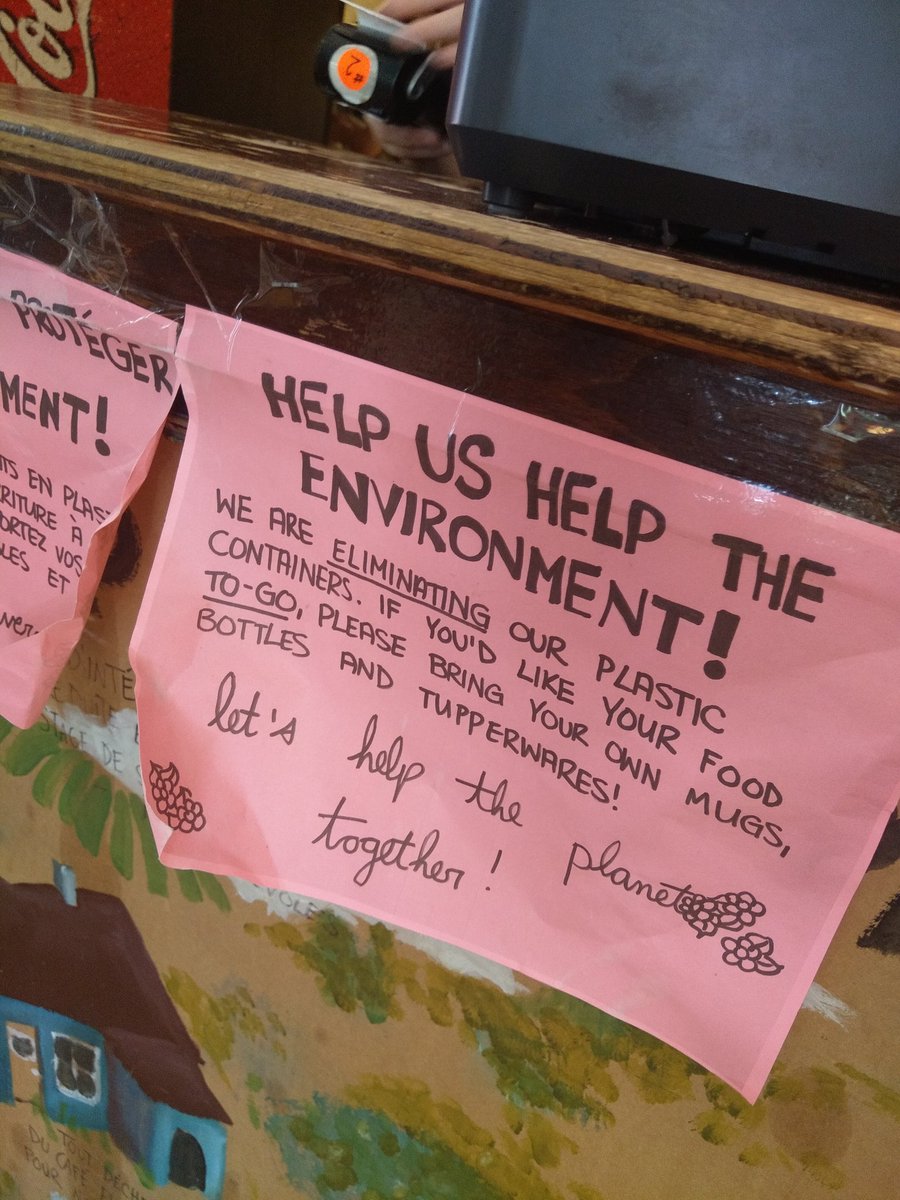 #2
PROTÉGER
MENT!
EN PLAS
RITURE À
ORTEZ VOS
LES ET
HELP US HELP THE
ENVIRONMENT!
WE ARE ELIMINATING OUR PLASTIC
CONTAINERS. IF YOU'D LIKE YOUR FOOD
TO-GO, PLEASE BRING YOUR OWN MUGS,
BOTTLES AND TUPPERWARES!
let's help the planet
together!
STAGE DE
TOUT DÉCH
DU CAFÉ
POUR